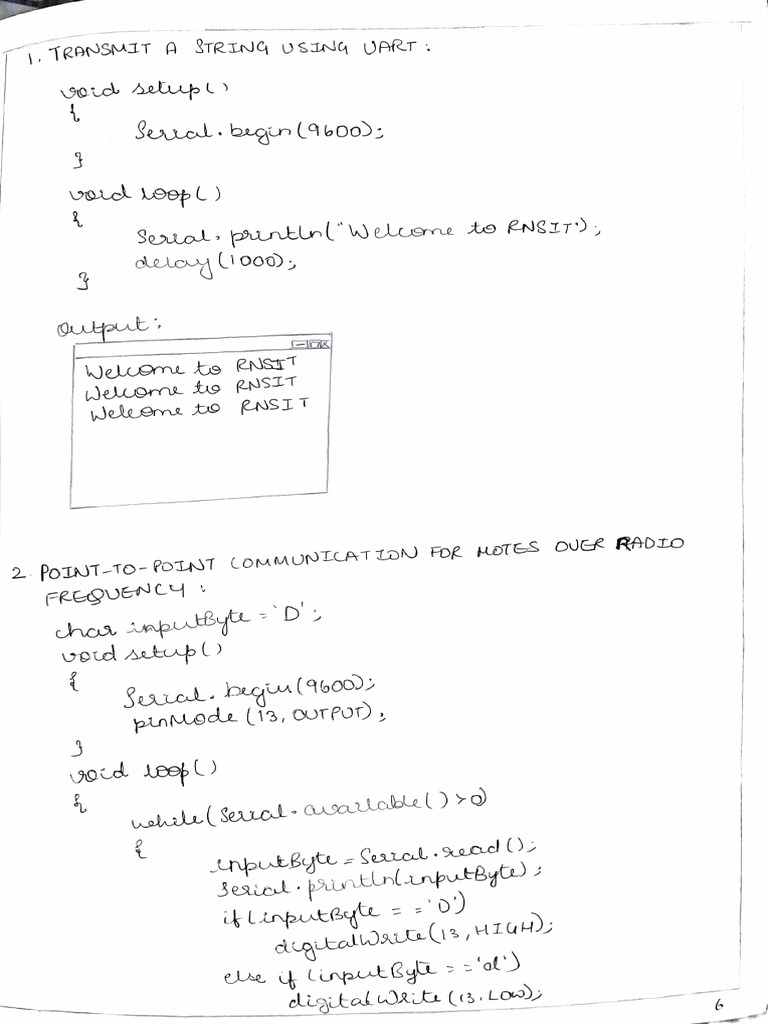 1. TRANSMIT A STRING USING UART :
void setup()
{
Serial.begin(9600);
}
void loop()
{
Serial.println("Welcome to RNSIT");
delay(1000);
}
Output:
Welcome to RNSIT
Welcome to RNSIT
Welcome to RNSIT
2. POINT-TO-POINT COMMUNICATION FOR MOTES OVER RADIO
FREQUENCY :
char inputByte = 'D';
void setup()
{
Serial.begin(9600);
pinMode (13, OUTPUT),
}
void loop()
{
while(Serial.available() > 0)
{
inputByte = Serial.read();
Serial.println(inputByte);
if(inputByte = = 'D')
digitalWrite(13, HIGH);
else if (inputByte = = 'd')
digitalWrite(13.LOW);
6